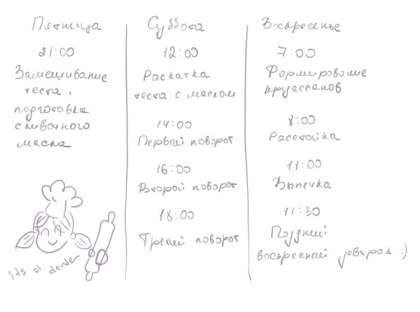 Пятница
21:00
Замешивание
теста,
подготовка
сливочного
масла
Суббота
12:00
Раскатка
теста с маслом
14:00
Первый поворот
16:00
Второй поворот
18:00
Третий поворот
Воскресенье
7:00
Формирование
круассанов
8:00
Расстойка
11:00
Выпечка
11:30
Поздний
воскресный завтрак :)